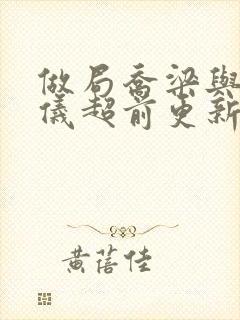 做局喬梁與
儀超前更新
黃蓓佳